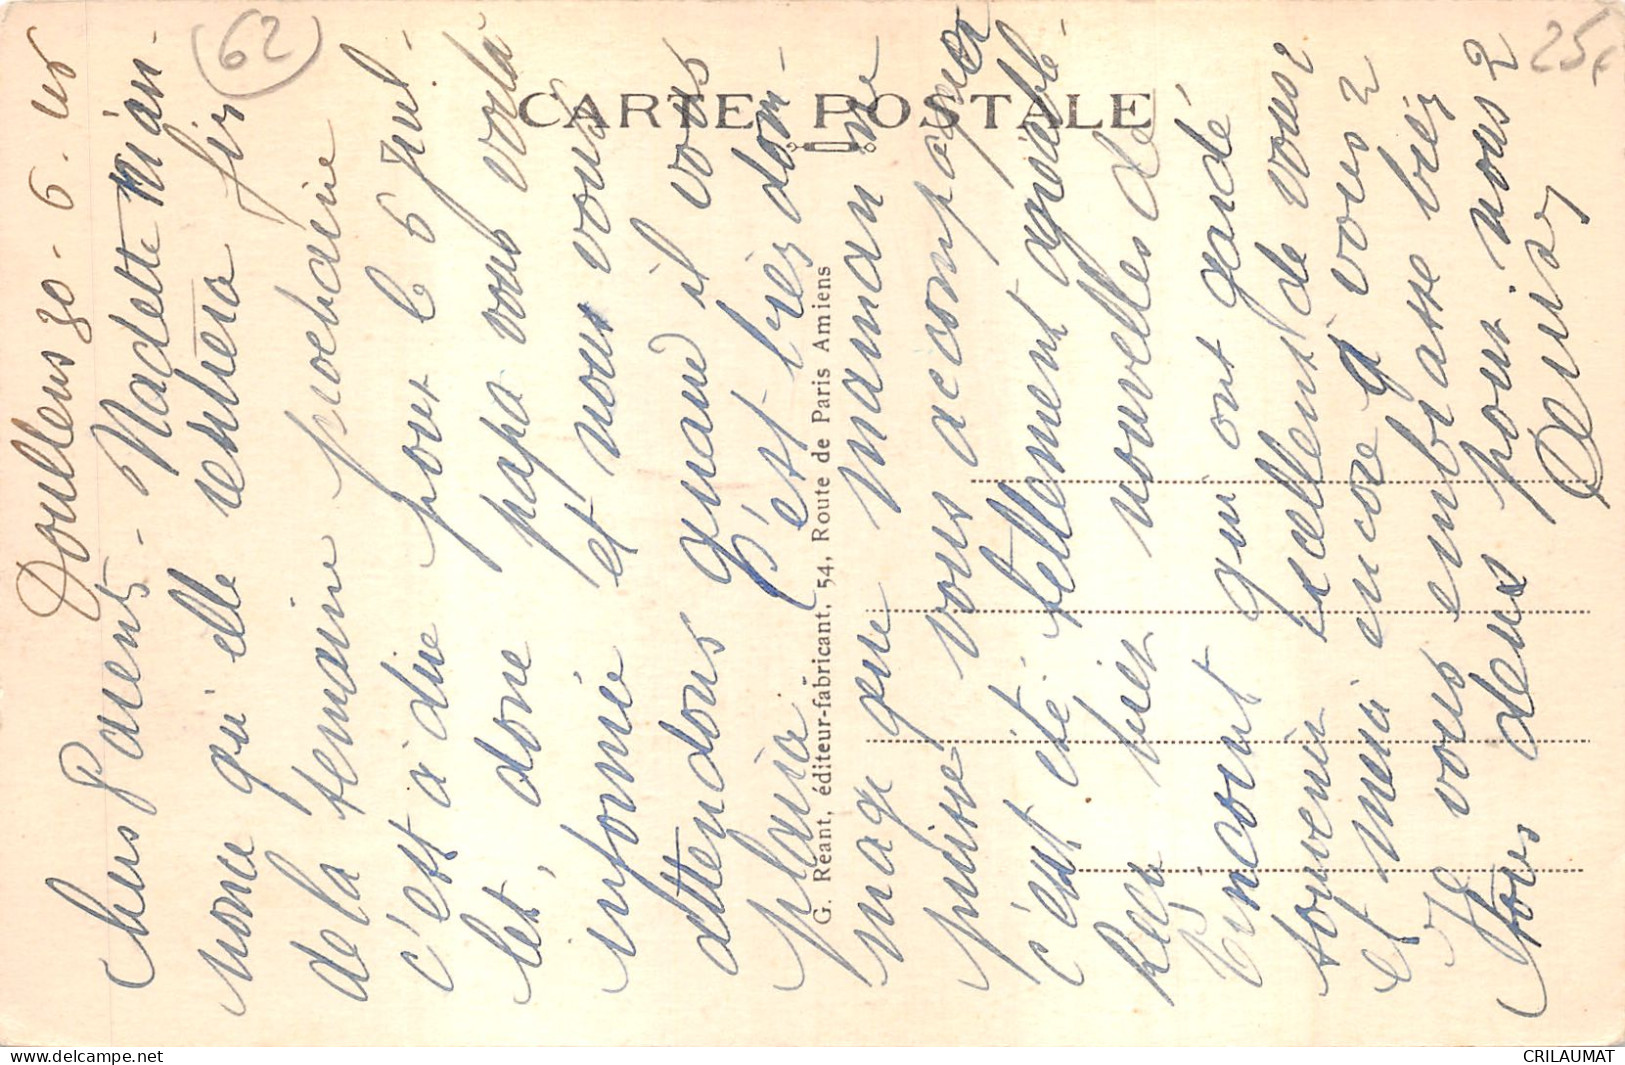 62
25€
CARTE POSTALE
G. Réant, éditeur-fabricant, 54, Route de Paris Amiens
Doullens 30-6-
Chers Parents - Nadette m'an-
nonce qu'elle rentrera fin
de la semaine prochaine
c'est à dire pour le 6 Juil-
let, donc papa vous voilà
informé et nous vous
attendons quand il vous
plaira. C'est très dom-
mage que maman ne
puisse vous accompagner
c'eut été tellement agréable.
Reçu bien nouvelles de
qui ont gardé
souvenir excellent de vous 2
et merci encore à vous 2
Je vous embrasse bien
tous deux pour nous 2
Denise
delcampe.net
CRILAUMAT